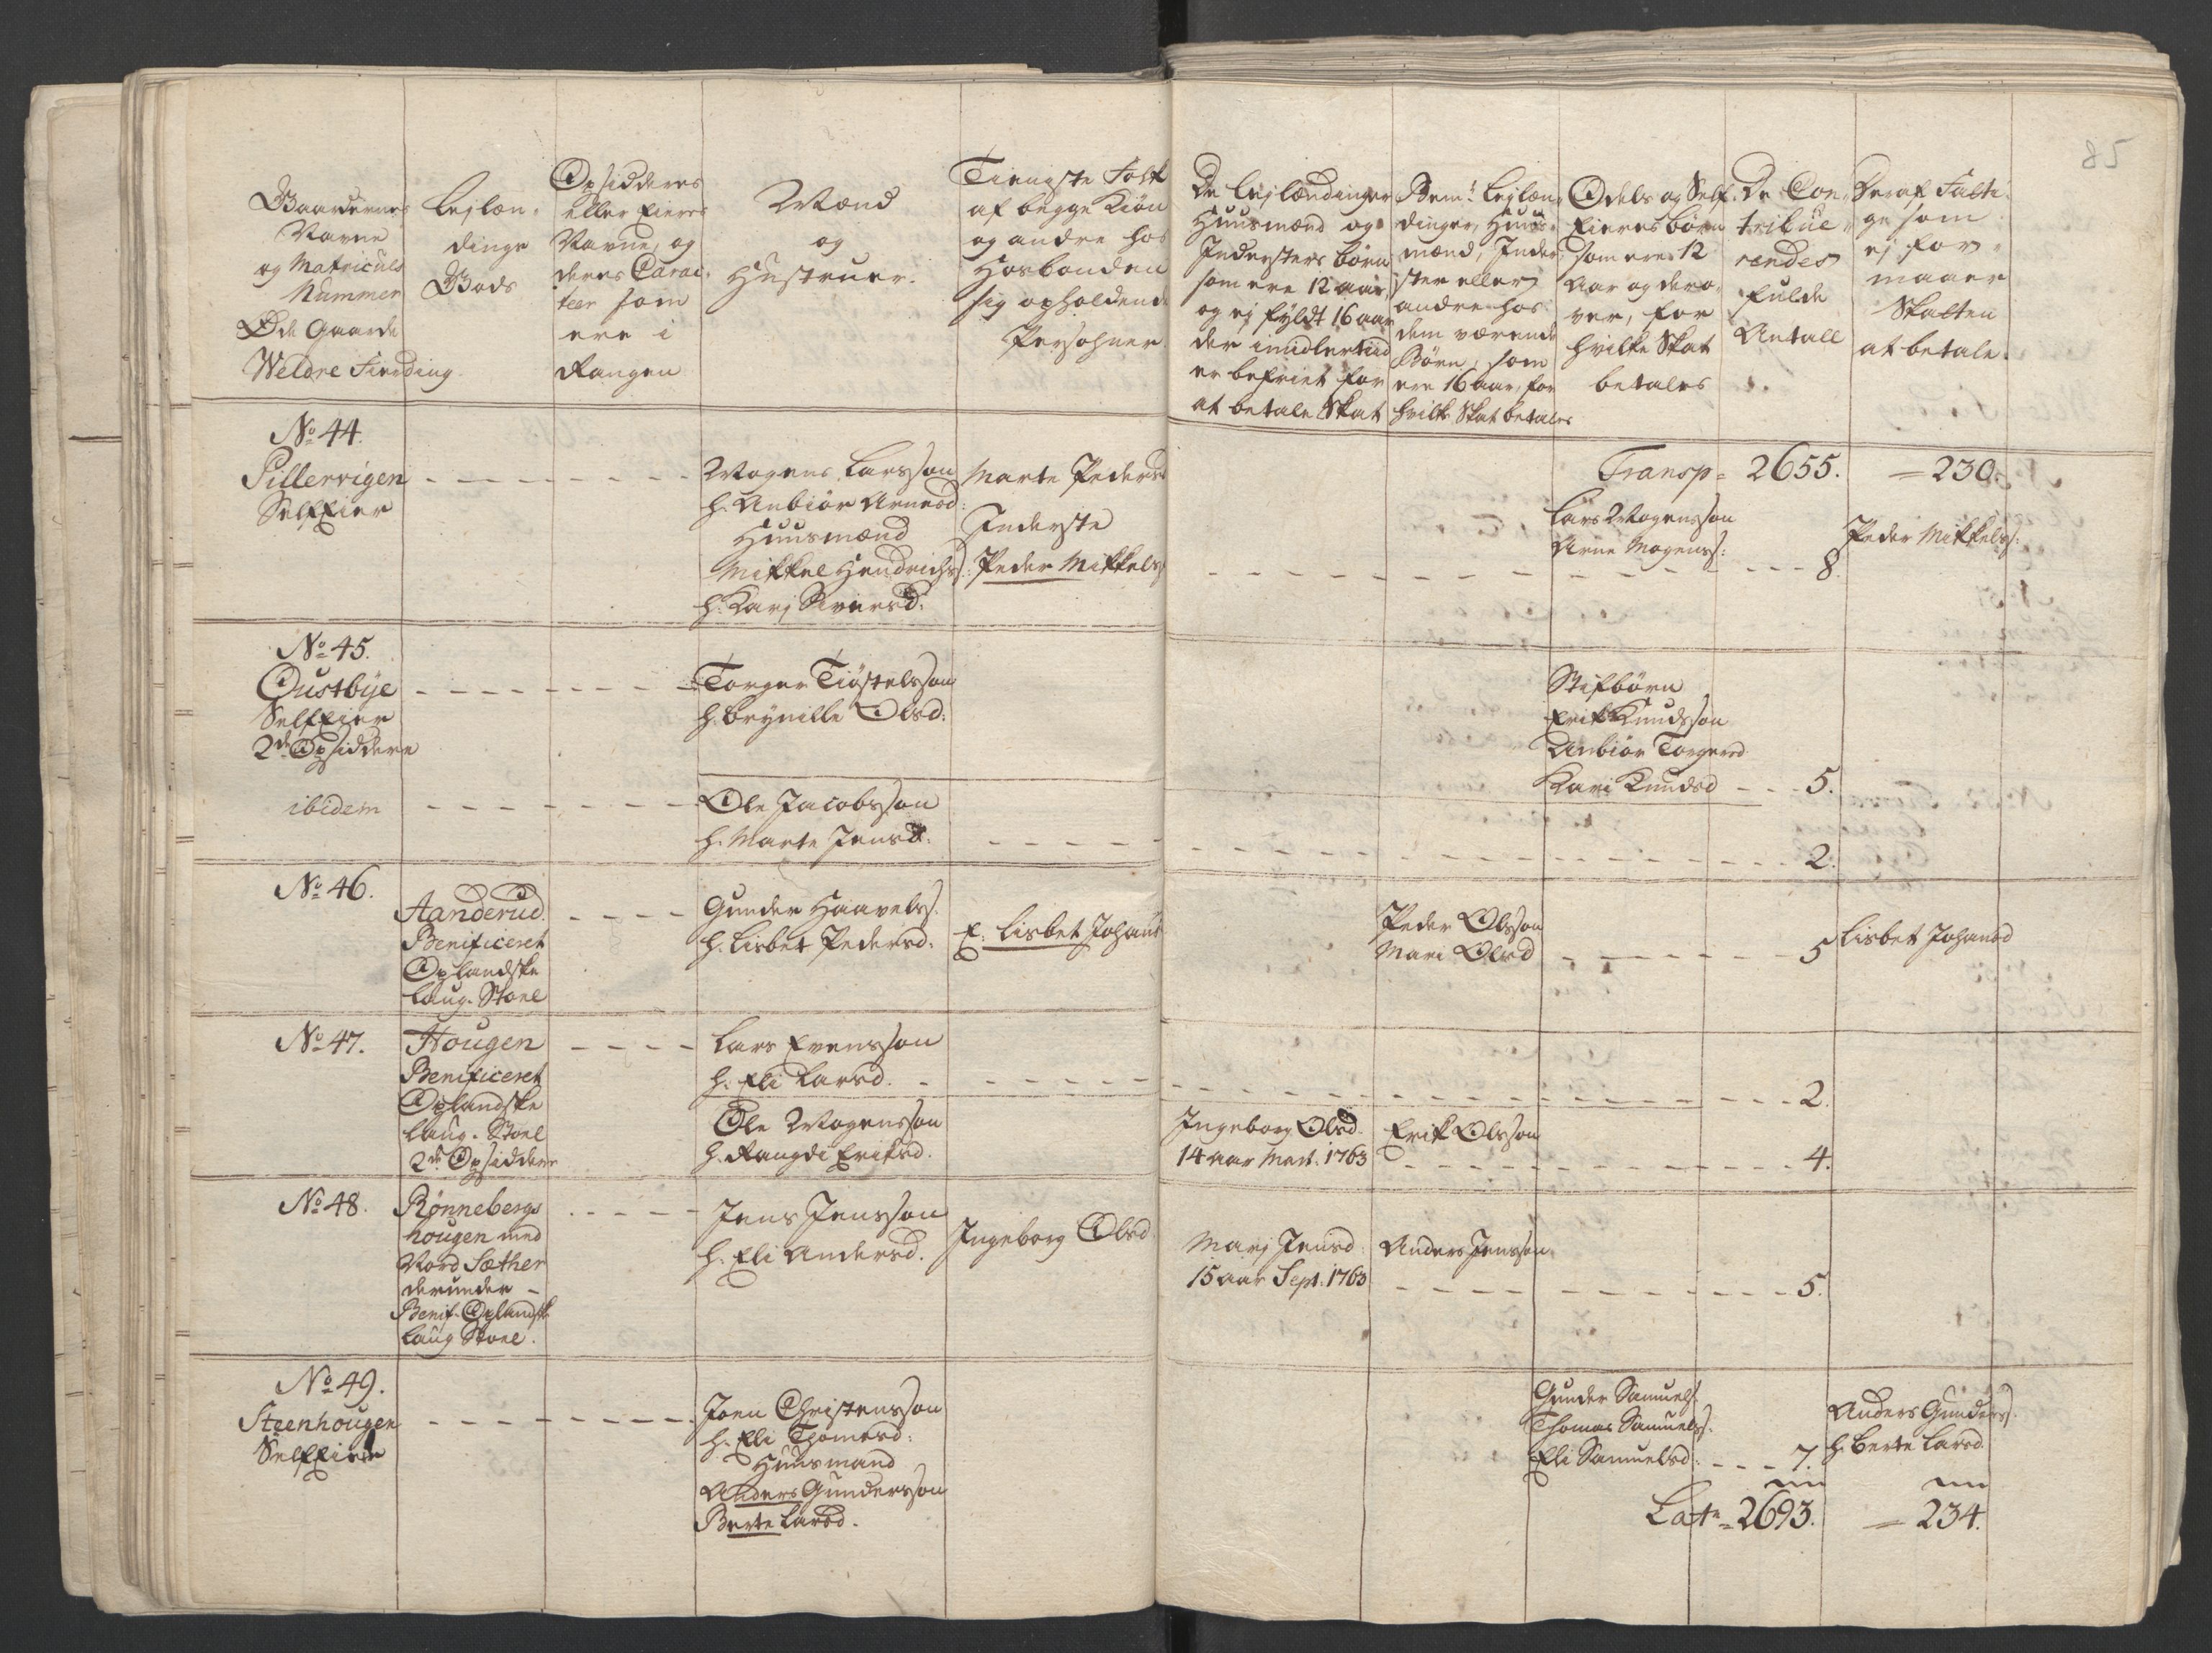 85
Gaardernes
Navne
og Matriculs
Nummer
Øde Gaarde
Weldre Fierding
Lejlæn-
dinge
Gods
Opsidderes
eller Eieres
Navne, og
deres Carac-
teer som
ere i
Rangen
Mænd
og
Hustruer.
Tieneste Folk
af begge Kiøn
og andre hos
Hosbonden
sig opholdende
Persohner
De Lejlændinger
Huusmænd og
Indersters børn
som ere 12 aar,
og ej fyldt 16 aar
der imidlertiid
er befriet for
at betale Skat
Bemt. Lejlæn-
dinger, Huus-
mænd, Inder-
ster eller
andre hos
dem værende
Børn, som
ere 16 aar, for
hvilke Skat betales
Odels og Self-
Eieres børn
som ere 12
Aar og dero-
ver, for
hvilke Skat
betales
De Con-
tribue-
rendes
fulde
Antall
Deraf Fatti-
ge som
ej for-
maaer
Skatten
at betale.
Transp = 2655. = 230.
No. 44.
Pillervigen
Selfeier
Mogens Larsson
h. Anbiør Arnesd:
Huusmænd
Mikkel Hendrichs:
h. Karj Siversd:
Marte Peders
Inderste
Peder Mikkels:
Lars Mogensson
Arne Mogens:
8.
Peder Mikkels:
No. 45.
Oustbye
Selfeier
2de Opsiddere
Torger Tiøstelsson
h. Brynille Olsd:
Stifbørn
Erik Knudsson
Anbiør Torgersd
Kari Knudsd - - - 5.
ibidem
Ole Jacobsson
h. Marte Jensd:
2.
No. 46.
Aanderud.
Benificeret
Oplandske
Laug-Stoel
Gunder Haavels:
h. Lisbet Pedersd:
E. Lisbet Johans
Peder Olsson
Mari Olsd
5
Lisbet Johansd
No. 47.
Hougen
Benificeret
Oplandske
Laug-Stoel
2de Opsiddere
Lars Evensson
h. Eli Larsd.
2.
Ole Mogensson
h. Rangdi Eriksd.
Ingeborg Olsd.
14 aar Mart. 1763
Erik Olsson
4.
No. 48.
Rønnebergs
hougen med
Nord Sæther
derunder -
Benif. Oplandsk
Laug Stoel.
Jens Jensson
h. Eli Andersd.
Ingeborg Olsd.
Marj Jensd.
15 aar Sept. 1763
Anders Jensson
5.
No. 49.
Steenhougen
Selfeier
Joen Christensson
h. Eli Thomesd:
Huusmand
Anders Gundersson
Berte Larsd.
Gunder Samuels:
Thomas Samuels:
Eli Samuelsd: - - - 7.
Anders Gunders:
h. Berte Larsd.
Late = 2693. = 234.